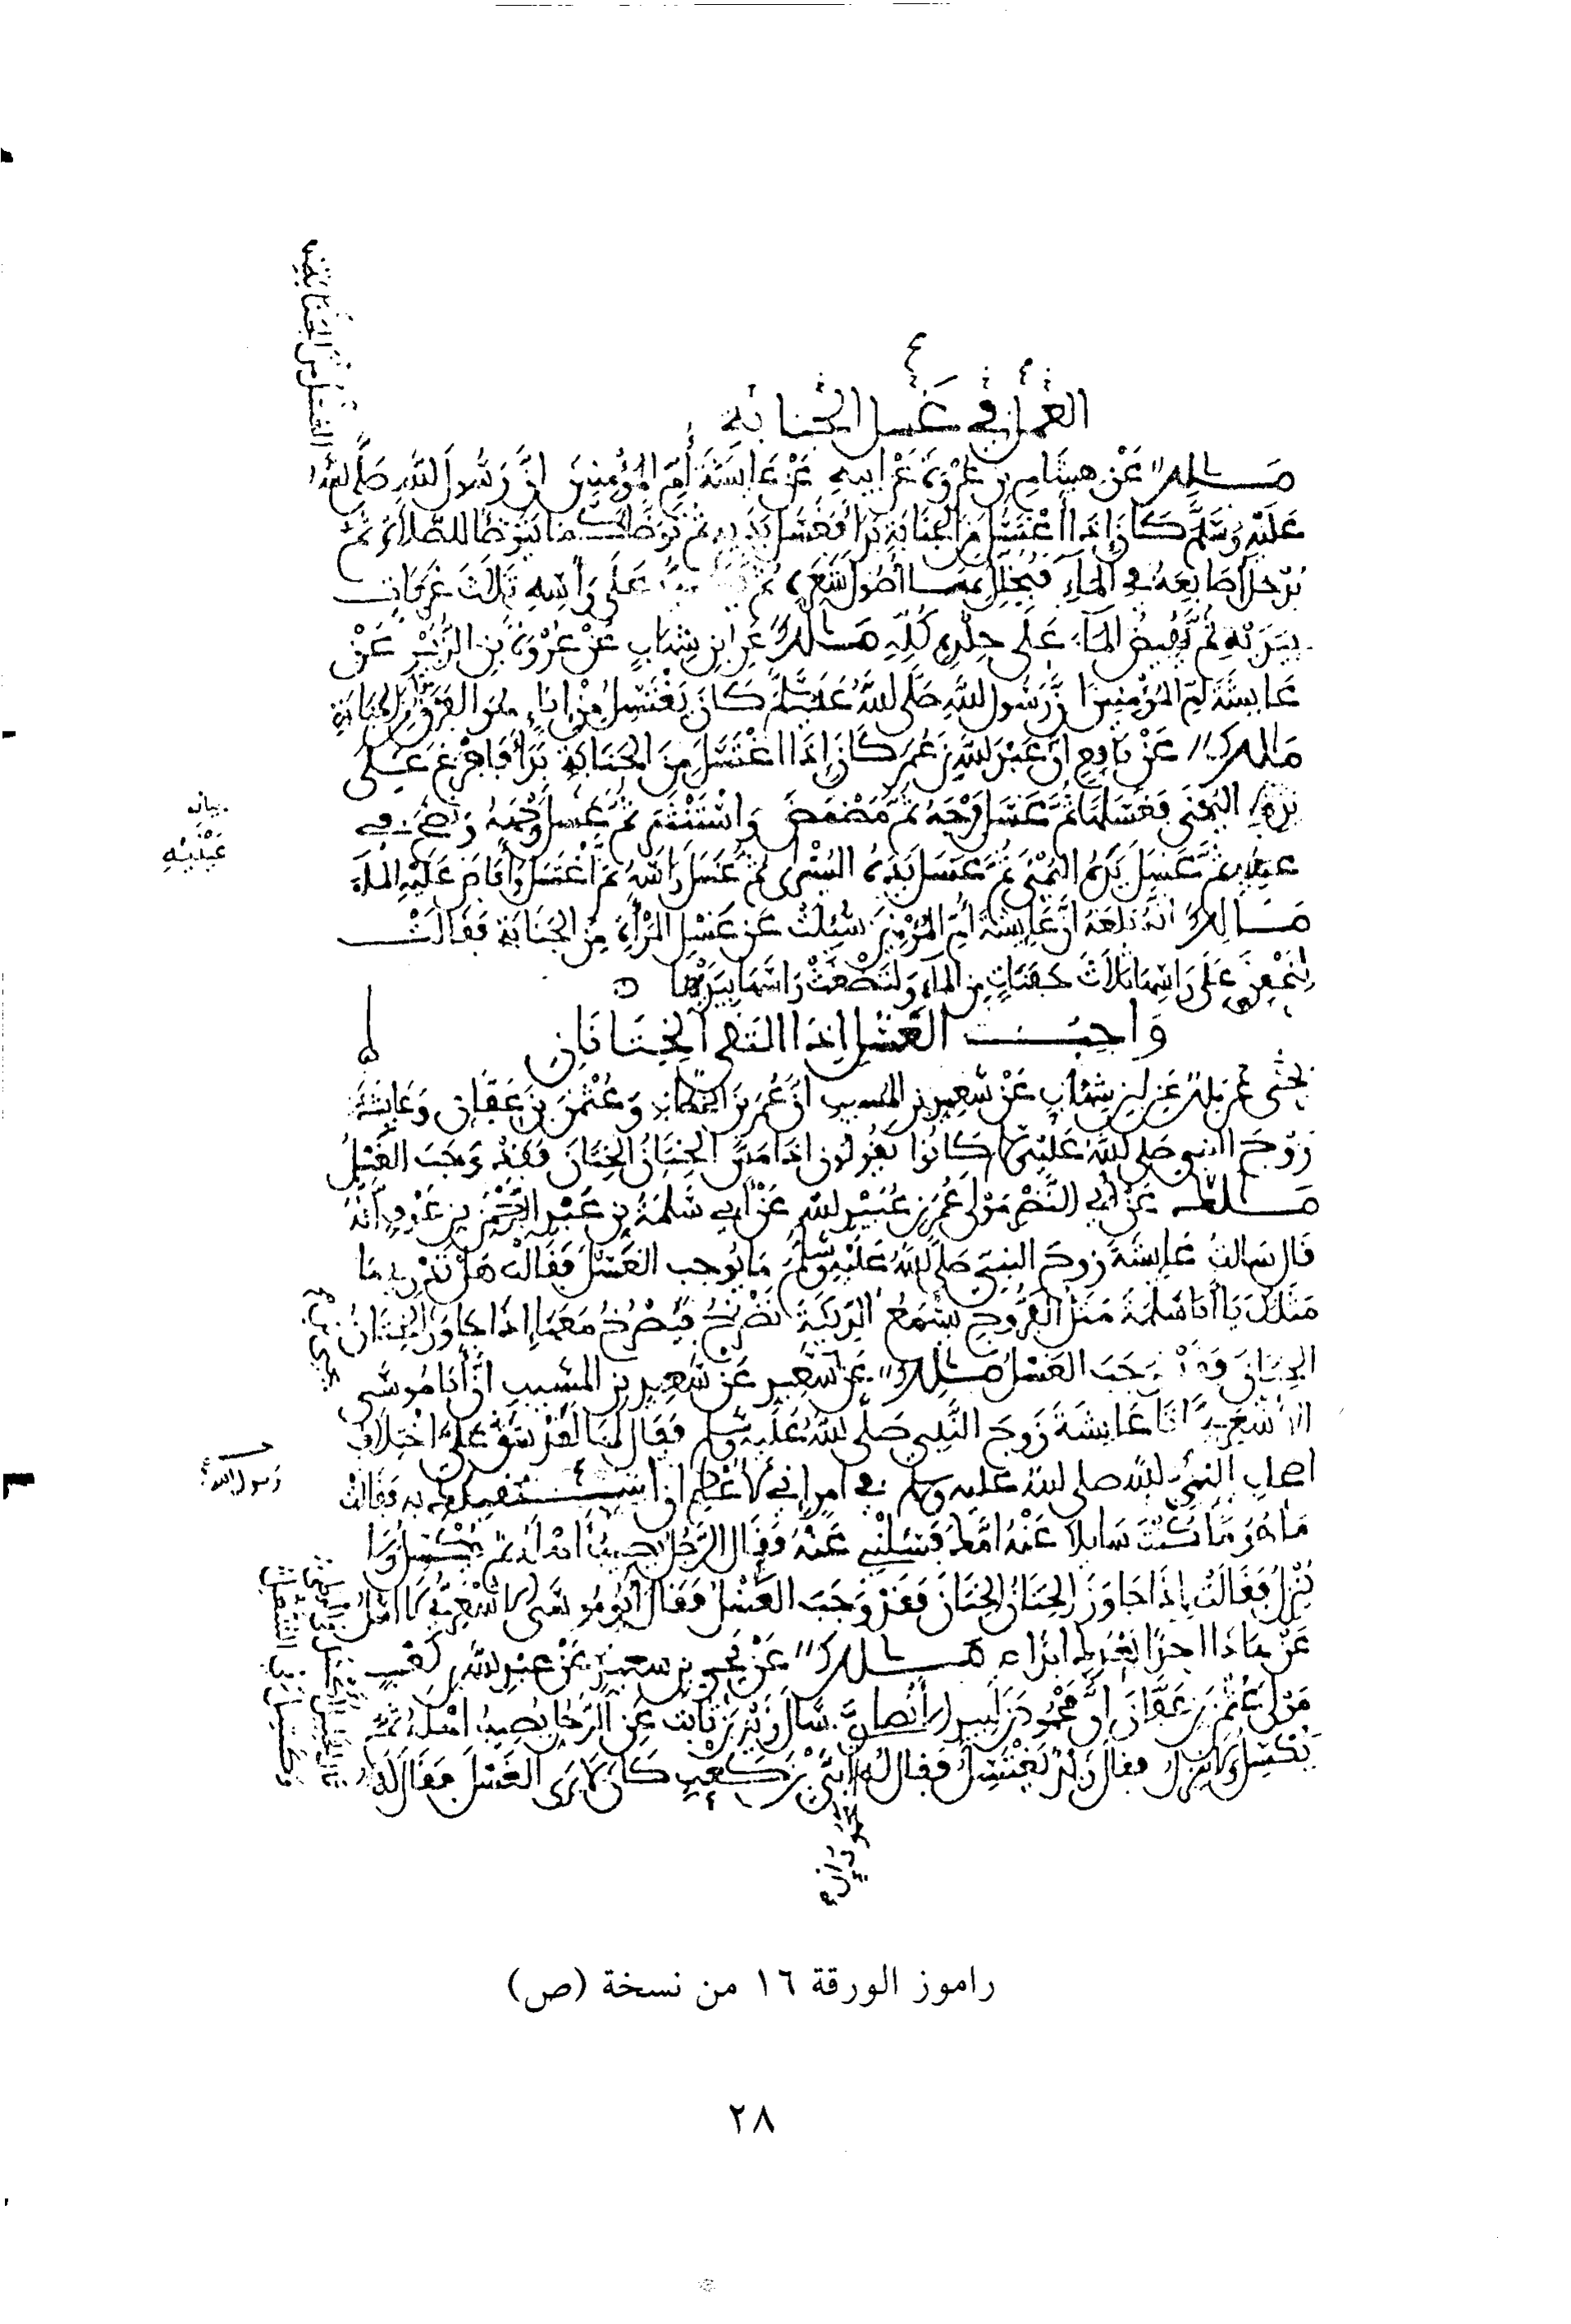 العمل في غسل الجنابة
مالك عن هشام بن عروة عن ابيه عن عايشة أم المؤمنين ان رسول الله صلى الله
عليه وسلم كان إذا اغتسل من الجنابة بدأ فغسل يديه ثم توضأ كما يتوضأ للصلاة ثم
يدخل أصابعه في الماء فيخلل بها أصول شعره ثم على رأسه ثلاث غرفات
بيديه ثم يفيض الماء على جلده كله مالك عن ابن شهاب عن عروة بن الزبير عن
عايشة أم المؤمنين ان رسول الله صلى الله عليه وسلم كان يغتسل من إناء هو الفرق من الجنابة
مالك عن نافع ان عبد الله بن عمر كان إذا اغتسل من الجنابة بدأ فافرغ على
يده اليمنى فغسلها ثم غسل فرجه ثم مضمض واستنثر ثم غسل وجهه ونضح في
عينيه ثم غسل يده اليمنى ثم غسل يده اليسرى ثم غسل رأسه ثم اغتسل وأفاض عليه الماء
مالك انه بلغه ان عايشة أم المؤمنين سئلت عن غسل المرأة من الجنابة فقالت
لتحفن على رأسها ثلاث حفنات من الماء ولتضغث رأسها بيديها
واجب الغسل إذا التقى الختانان
يحيى عن مالك عن ابن شهاب عن سعيد بن المسيب ان عمر بن الخطاب وعثمن بن عفان وعايشة
زوج النبي صلى الله عليه وسلم كانوا يقولون اذا مس الختان الختان فقد وجب الغسل
مالك عن أبي النضر مولى عمر بن عبيد الله عن أبي سلمة بن عبد الرحمن بن عوف أنه
قال سالت عايشة زوج النبي صلى الله عليه وسلم ما يوجب الغسل فقالت هل تدري ما
مثلك يا أبا سلمة مثل الفروج يسمع الديكة تصرخ فيصرخ معها إذا جاوز الختان
الختان فقد وجب الغسل مالك عن يحيى بن سعيد عن سعيد بن المسيب ان أبا موسى
الأشعري اتا عايشة زوج النبي صلى الله عليه وسلم فقال لها لقد شق علي اختلاف
اصحاب النبي صلى الله عليه وسلم في امر إني لأعظم ان استقبلك به فقالت
ما هو ما كنت سايلا عنه امك فسلني عنه فقال الرجل يصيب اهله ثم يكسل ولا
ينزل فقالت إذا جاوز الختان الختان فقد وجب الغسل فقال أبو موسى الأشعري لا اسل
عن هذا احدا بعدك ابدا مالك عن يحيى بن سعيد عن عبد الله بن كعب
مولى عثمن بن عفان ان محمود بن لبيد الأنصاري سال زيد بن ثابت عن الرجل يصيب اهله ثم
يكسل ولا ينزل فقال زيد يغتسل فقال له ان أبي بن كعب كان لا يرى الغسل فقال له
بيان
عينيه
رسول الله
راموز الورقة ١٦ من نسخة (ص)
٢٨